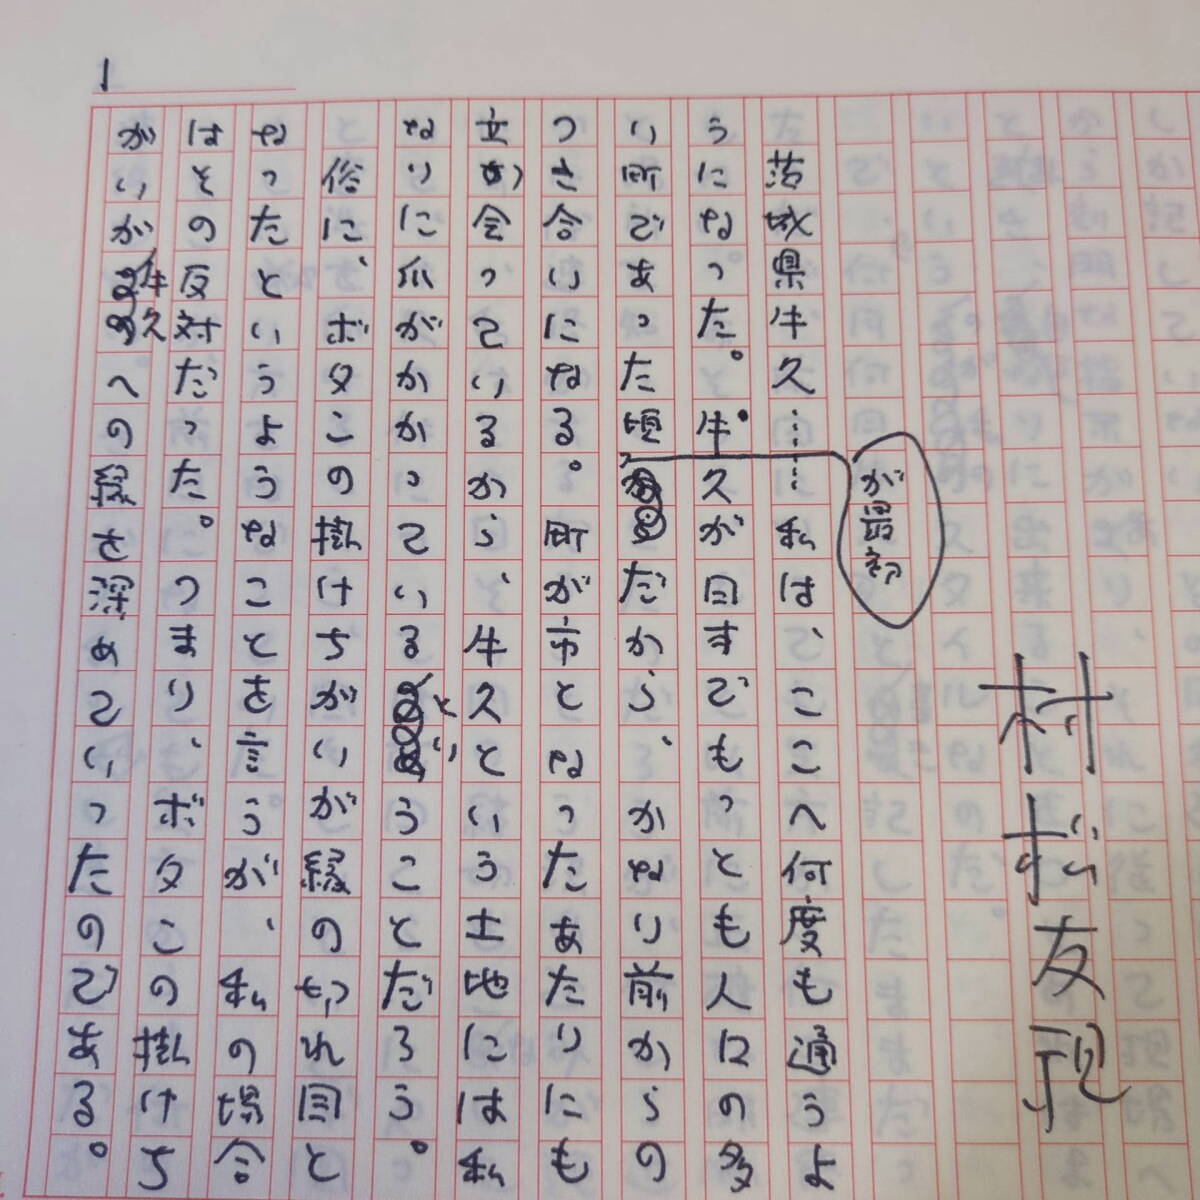 1
村松友視
茨城県牛久……私は、ここへ何度も通うよ
うになった。牛久が日本でもっとも人口の多
い町であった頃が最初だから、かなり前からの
つき合いになる。町が市となったあたりにも
立ち会っているから、牛久という土地には私
なりに爪がかかっているということだろう。
俗に、ボタンの掛けちがいが縁の切れ目と
なったというようなことを言うが、私の場合
はその反対だった。つまり、ボタンの掛けち
がいが牛久への縁を深めていったのである。